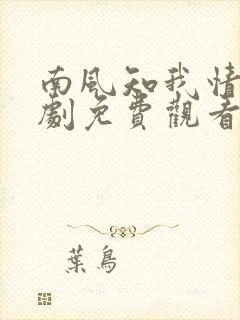 南風知我情
劇免費觀看
葉鳥